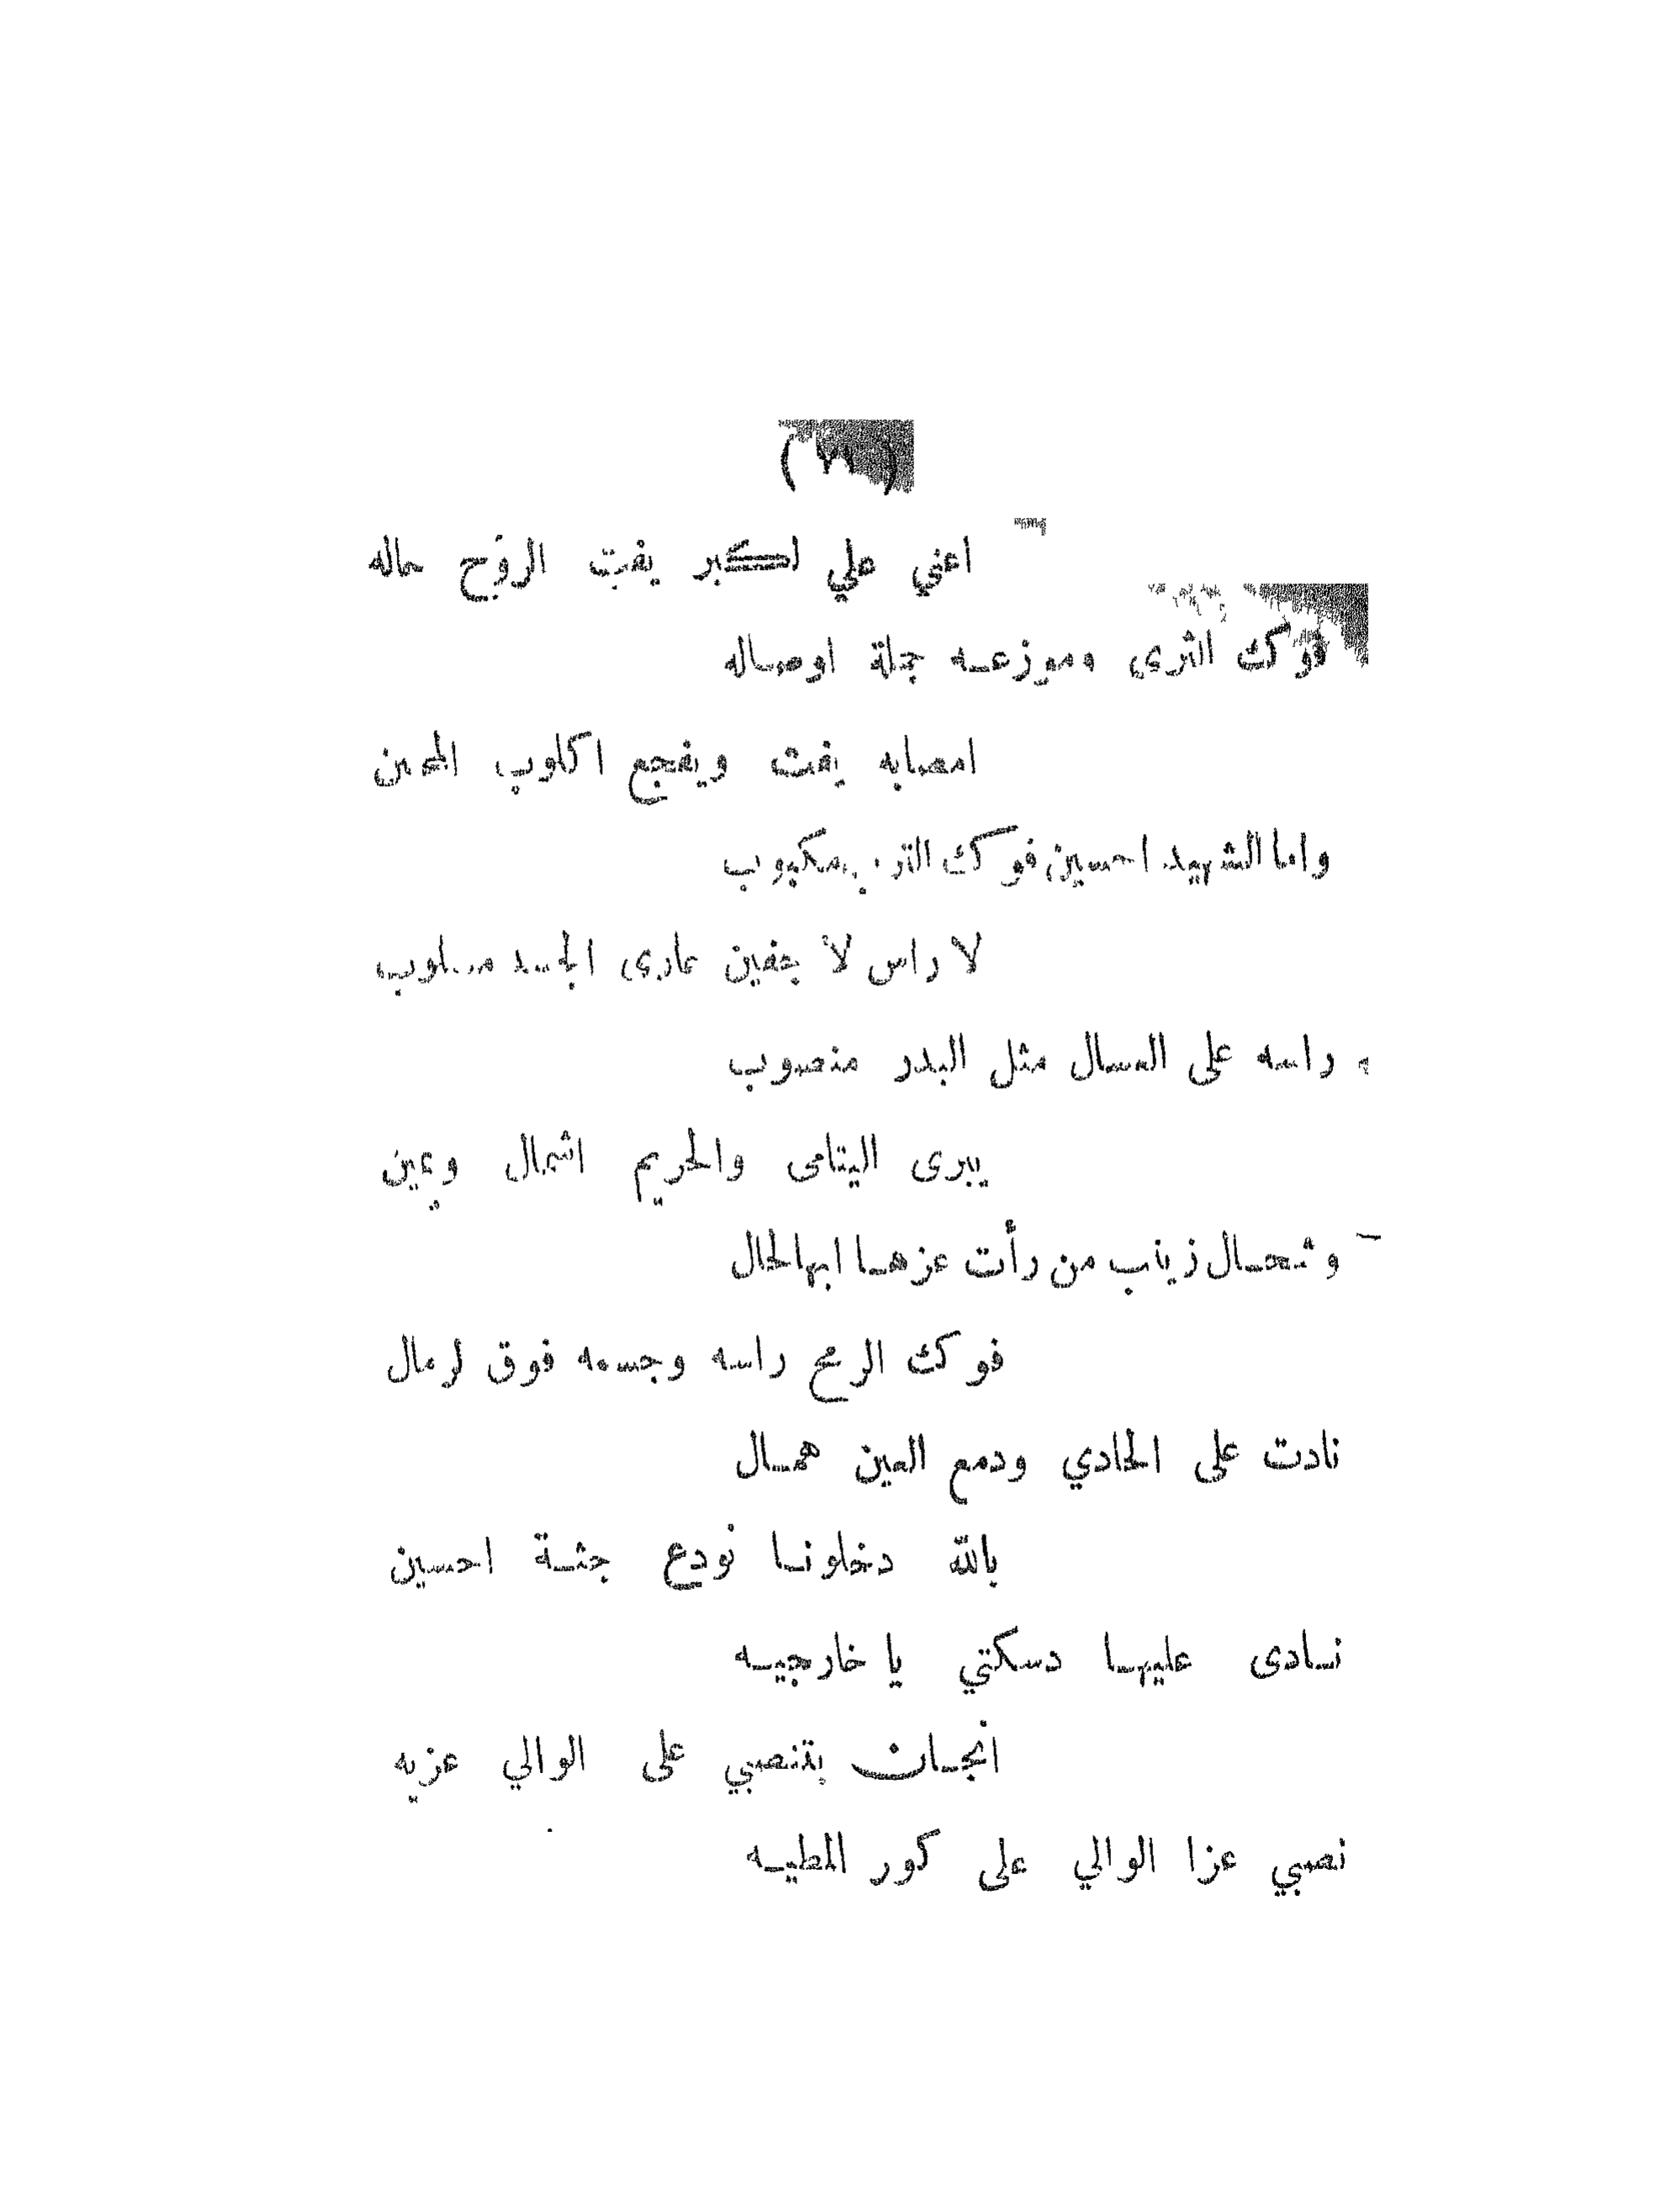 اعني علي لكبر يفت الروح حاله
فوك الثرى وموزعه جملة اوصاله
امصابه يفت ويفجع اكلوب المحبين
واما الشهيد احسين فوك الترب مكبوب
لا راس لا چفين عاري الجسد مسلوب
راسه على العسال مثل البدر منصوب
يبرى اليتامى والحريم اشمال ويمين
وشحال زينب من رأت عزها ابهالحال
فوك الرمح راسه وجسمه فوق لرمال
نادت على الحادي ودمع العين همال
بالله دخلونا نودع جثة احسين
نادى عليها دسكتي يا خارجيه
انچان بتنصبي على الوالي عزيه
نصبي عزا الوالي على كور المطيه